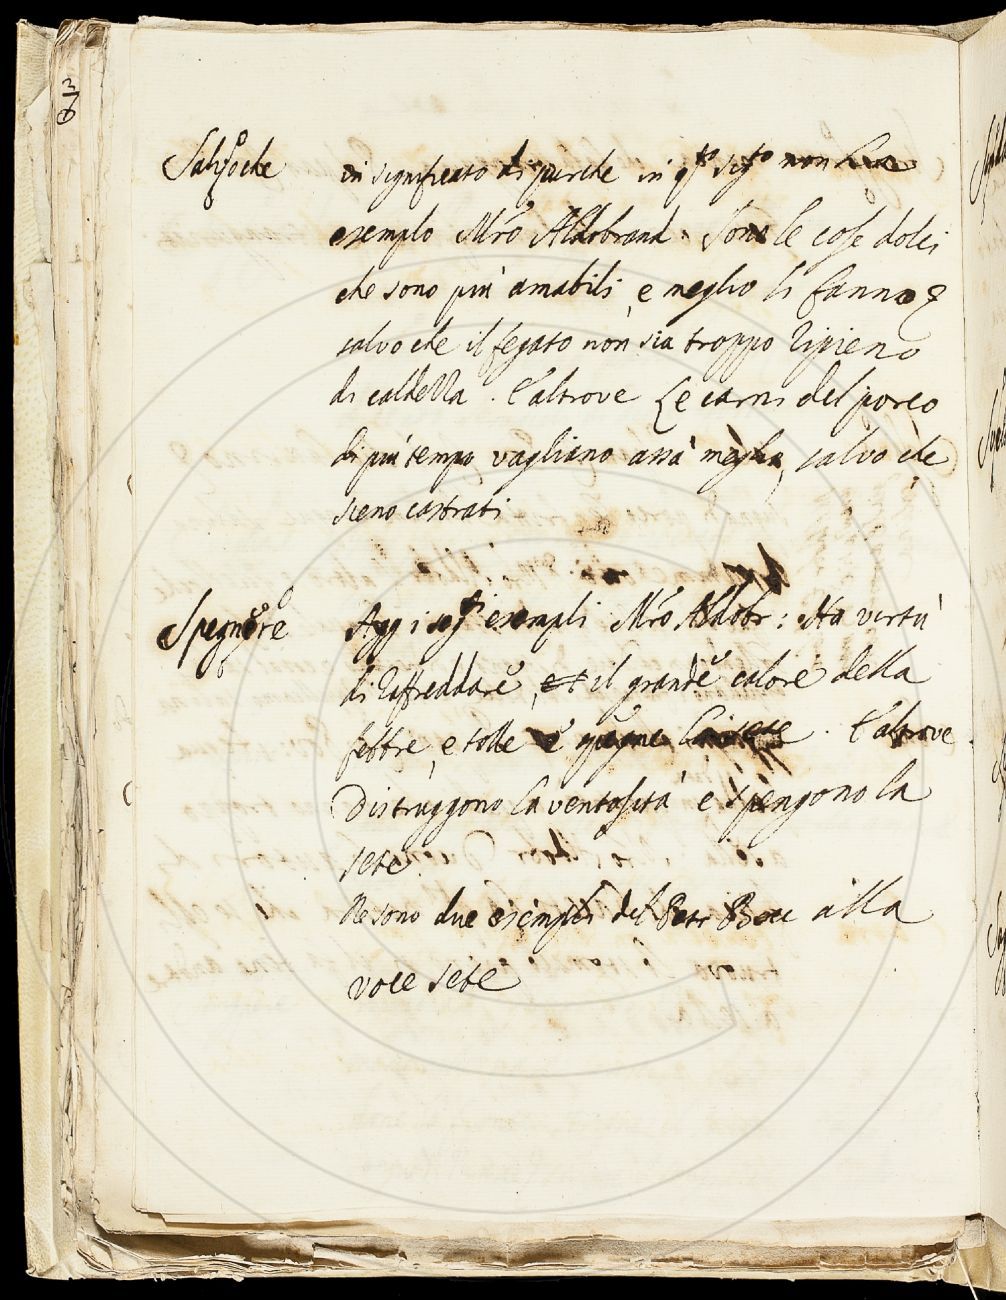 Salvoche in significato di purche in q.to sig.to non ha
esemplo Mro Aldobrand. Sono le cose dolci
che sono più amabili, e meglio si fanno
salvo che il fegato non sia troppo ripieno
di caldezza. E altrove Le carni del porco
di più tempo vagliano assà meglio, salvo che
sieno castrati
Spegnere Agg i seg.ti esempli Mro Aldobr: Ha vertù
di raffreddare, il grande calore della
febbre, e tolle e spegne la sete. E altrove
Distruggono la ventosità e spengono la
sete.
Ne sono due esempli del Petr Bocc alla
voce sete